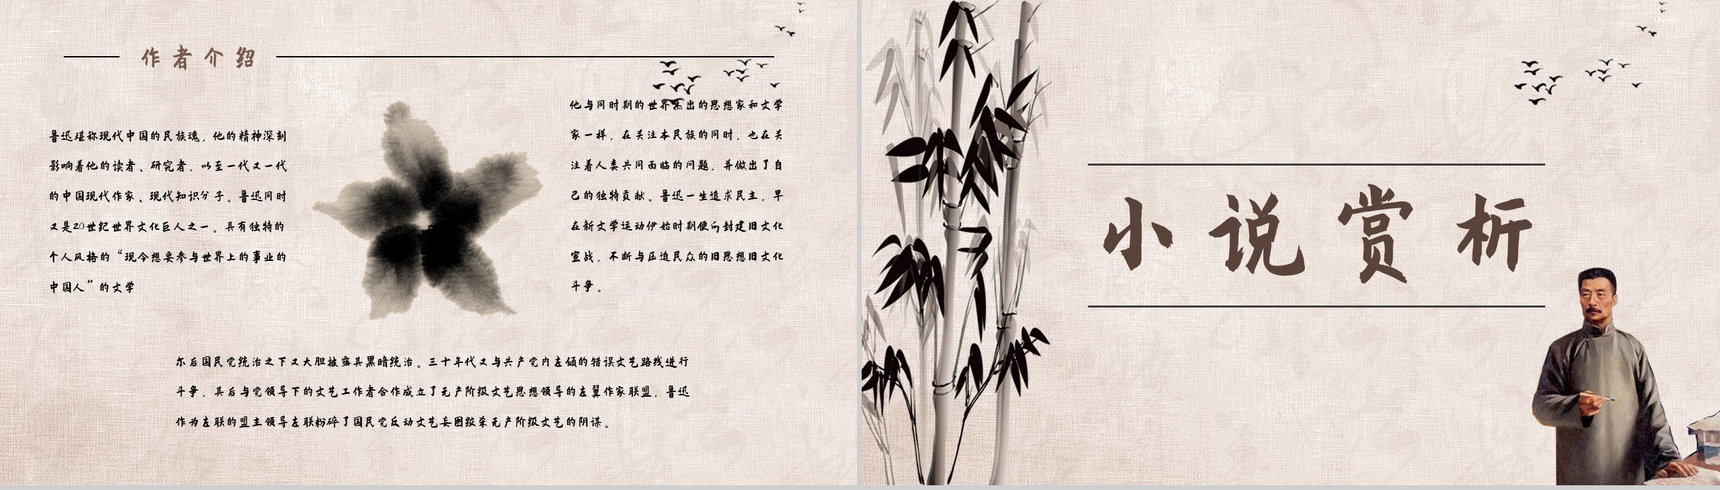 作者介绍
鲁迅堪称现代中国的民族魂，他的精神深刻
影响着他的读者、研究者，以至一代又一代
的中国现代作家、现代知识分子。鲁迅同时
又是20世纪世界文化巨人之一。具有独特的
个人风格的“现今想要参与世界上的事业的
中国人”的文学
他与同时期的世界杰出的思想家和文学
家一样，在关注本民族的同时，也在关
注着人类共同面临的问题，并做出了自
己的独特贡献。鲁迅一生追求民主，早
在新文学运动伊始时期便向封建旧文化
宣战，不断与压迫民众的旧思想旧文化
斗争。
尔后国民党统治之下又大胆披露其黑暗统治。三十年代又与共产党内左倾的错误文艺路线进行
斗争，其后与党领导下的文艺工作者合作成立了无产阶级文艺思想领导的左翼作家联盟，鲁迅
作为左联的盟主领导左联粉碎了国民党反动文艺妄图绞杀无产阶级文艺的阴谋。
小说赏析